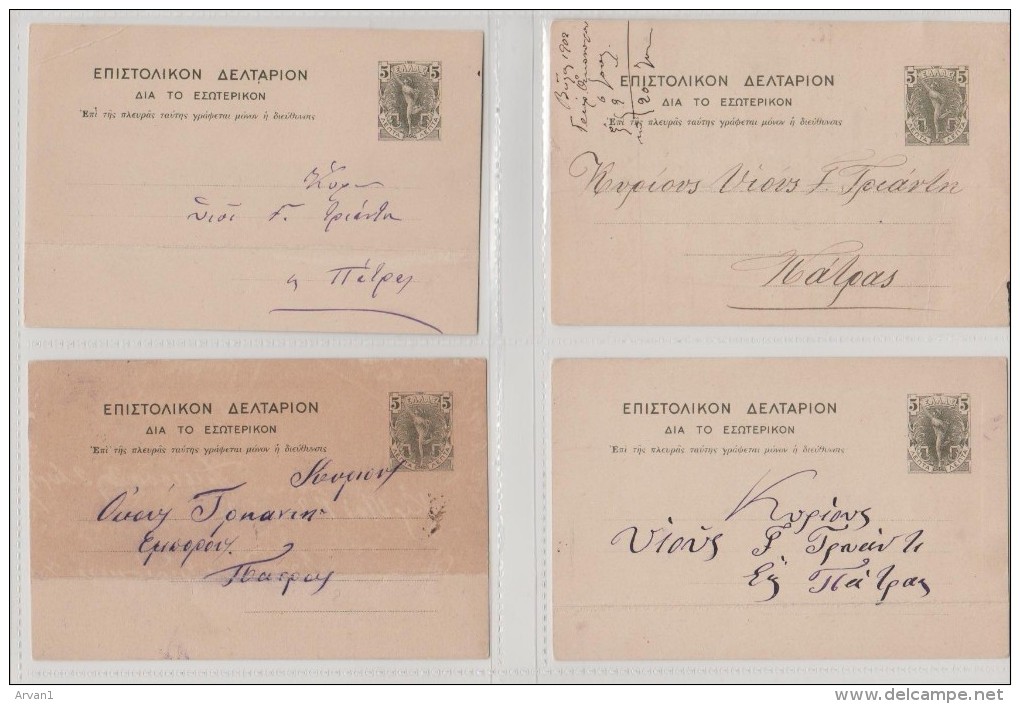 ΕΠΙΣΤΟΛΙΚΟΝ ΔΕΛΤΑΡΙΟΝ
ΔΙΑ ΤΟ ΕΣΩΤΕΡΙΚΟΝ
Ἐπὶ τῆς πλευρᾶς ταύτης γράφεται μόνον ἡ διεύθυνσις
5 ΕΛΛΑΣ 5
ΛΕΠΤΑ ΛΕΠΤΑ
Γ. Τριάντη
Πάτρας
1902
20
ΕΠΙΣΤΟΛΙΚΟΝ ΔΕΛΤΑΡΙΟΝ
ΔΙΑ ΤΟ ΕΣΩΤΕΡΙΚΟΝ
Ἐπὶ τῆς πλευρᾶς ταύτης γράφεται μόνον ἡ διεύθυνσις
5 ΕΛΛΑΣ 5
ΛΕΠΤΑ ΛΕΠΤΑ
Κυρίους Υἱους Γ. Τριάντη
Πάτρας
ΕΠΙΣΤΟΛΙΚΟΝ ΔΕΛΤΑΡΙΟΝ
ΔΙΑ ΤΟ ΕΣΩΤΕΡΙΚΟΝ
Ἐπὶ τῆς πλευρᾶς ταύτης γράφεται μόνον ἡ διεύθυνσις
5 ΕΛΛΑΣ 5
ΛΕΠΤΑ ΛΕΠΤΑ
Κυριους
Πατρας
ΕΠΙΣΤΟΛΙΚΟΝ ΔΕΛΤΑΡΙΟΝ
ΔΙΑ ΤΟ ΕΣΩΤΕΡΙΚΟΝ
Ἐπὶ τῆς πλευρᾶς ταύτης γράφεται μόνον ἡ διεύθυνσις
5 ΕΛΛΑΣ 5
ΛΕΠΤΑ ΛΕΠΤΑ
Κυρίους
Υἱοῦς Γ. Τρυάντι
Εἰς Πάτρας
Arvan1
www.delcampe.net